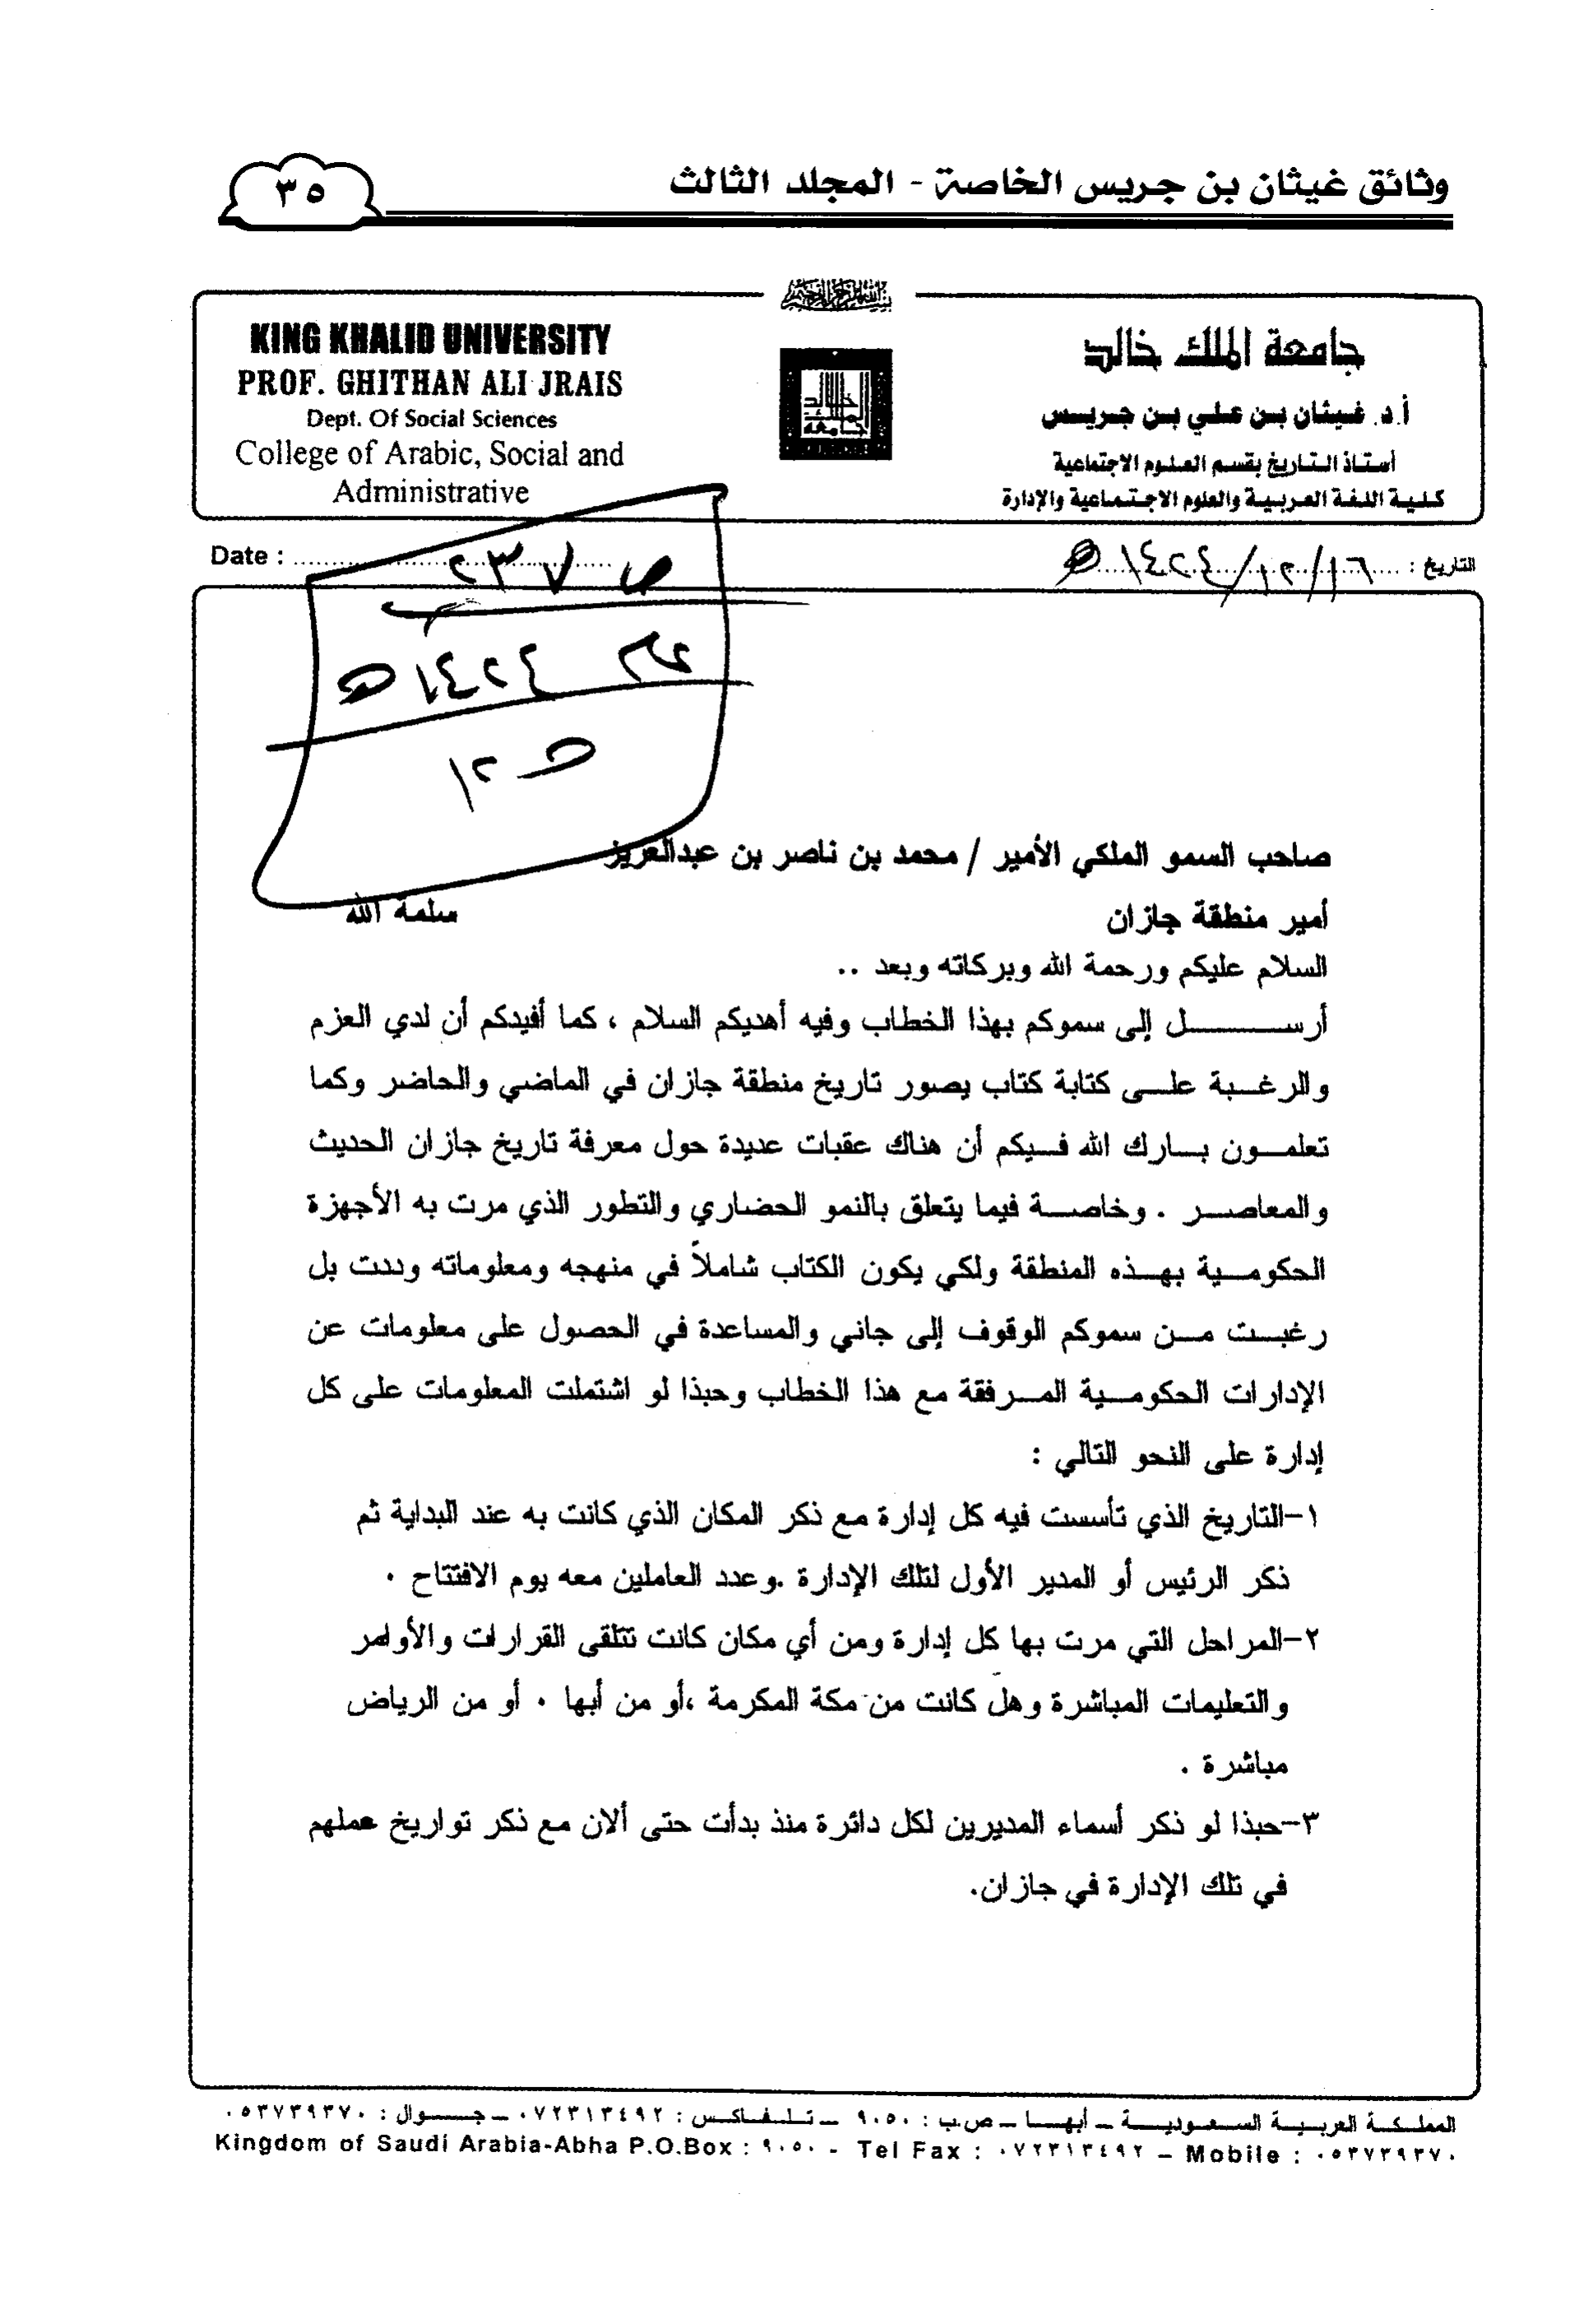 وثائق غيثان بن جريس الخاصة - المجلد الثالث
٣٥
جامعة الملك خالد
أ.د. غيثان بن علي بن جريس
أستاذ التاريخ بقسم العلوم الاجتماعية
كلية اللغة العربية والعلوم الاجتماعية والإدارة
KING KHALID UNIVERSITY
PROF. GHITHAN ALI JRAIS
Dept. Of Social Sciences
College of Arabic, Social and
Administrative
التاريخ : ١٤٢٤/١٢/١٦هـ
Date :
ص ٢٣٧
١٤٢٤هـ
١٢
صاحب السمو الملكي الأمير / محمد بن ناصر بن عبدالعزيز
أمير منطقة جازان سلمة الله
السلام عليكم ورحمة الله وبركاته وبعد ..
أرســــــل إلى سموكم بهذا الخطاب وفيه أهديكم السلام ، كما أفيدكم أن لدي العزم
والرغبة على كتابة كتاب يصور تاريخ منطقة جازان في الماضي والحاضر وكما
تعلمون بارك الله فيكم أن هناك عقبات عديدة حول معرفة تاريخ جازان الحديث
والمعاصر . وخاصة فيما يتعلق بالنمو الحضاري والتطور الذي مرت به الأجهزة
الحكومية بهذه المنطقة ولكي يكون الكتاب شاملاً في منهجه ومعلوماته وددت بل
رغبت من سموكم الوقوف إلى جاني والمساعدة في الحصول على معلومات عن
الإدارات الحكومية المرفقة مع هذا الخطاب وحبذا لو اشتملت المعلومات على كل
إدارة على النحو التالي :
١-التاريخ الذي تأسست فيه كل إدارة مع ذكر المكان الذي كانت به عند البداية ثم
ذكر الرئيس أو المدير الأول لتلك الإدارة .وعدد العاملين معه يوم الافتتاح .
٢-المراحل التي مرت بها كل إدارة ومن أي مكان كانت تتلقى القرارات والأوامر
والتعليمات المباشرة وهل كانت من مكة المكرمة ،أو من أبها . أو من الرياض
مباشرة .
٣-حبذا لو ذكر أسماء المديرين لكل دائرة منذ بدأت حتى ألان مع ذكر تواريخ عملهم
في تلك الإدارة في جازان.
المملكة العربية السعودية – أبها – ص.ب : ٩٠٥٠ – تلفاكس : ٠٧٢٣١٣٤٩٢ – جوال : ٠٥٣٧٣٩٣٧٠
Kingdom of Saudi Arabia-Abha P.O.Box : ٩٠٥٠ - Tel Fax : ٠٧٢٣١٣٤٩٢ – Mobile : ٠٥٣٧٣٩٣٧٠